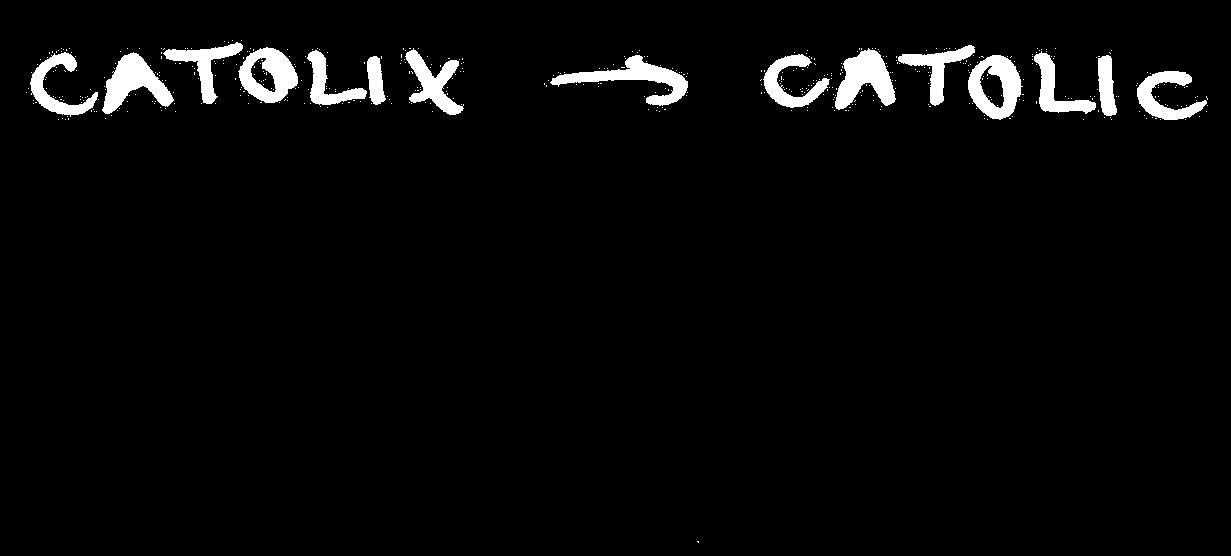 CATOLIX → CATOLIC